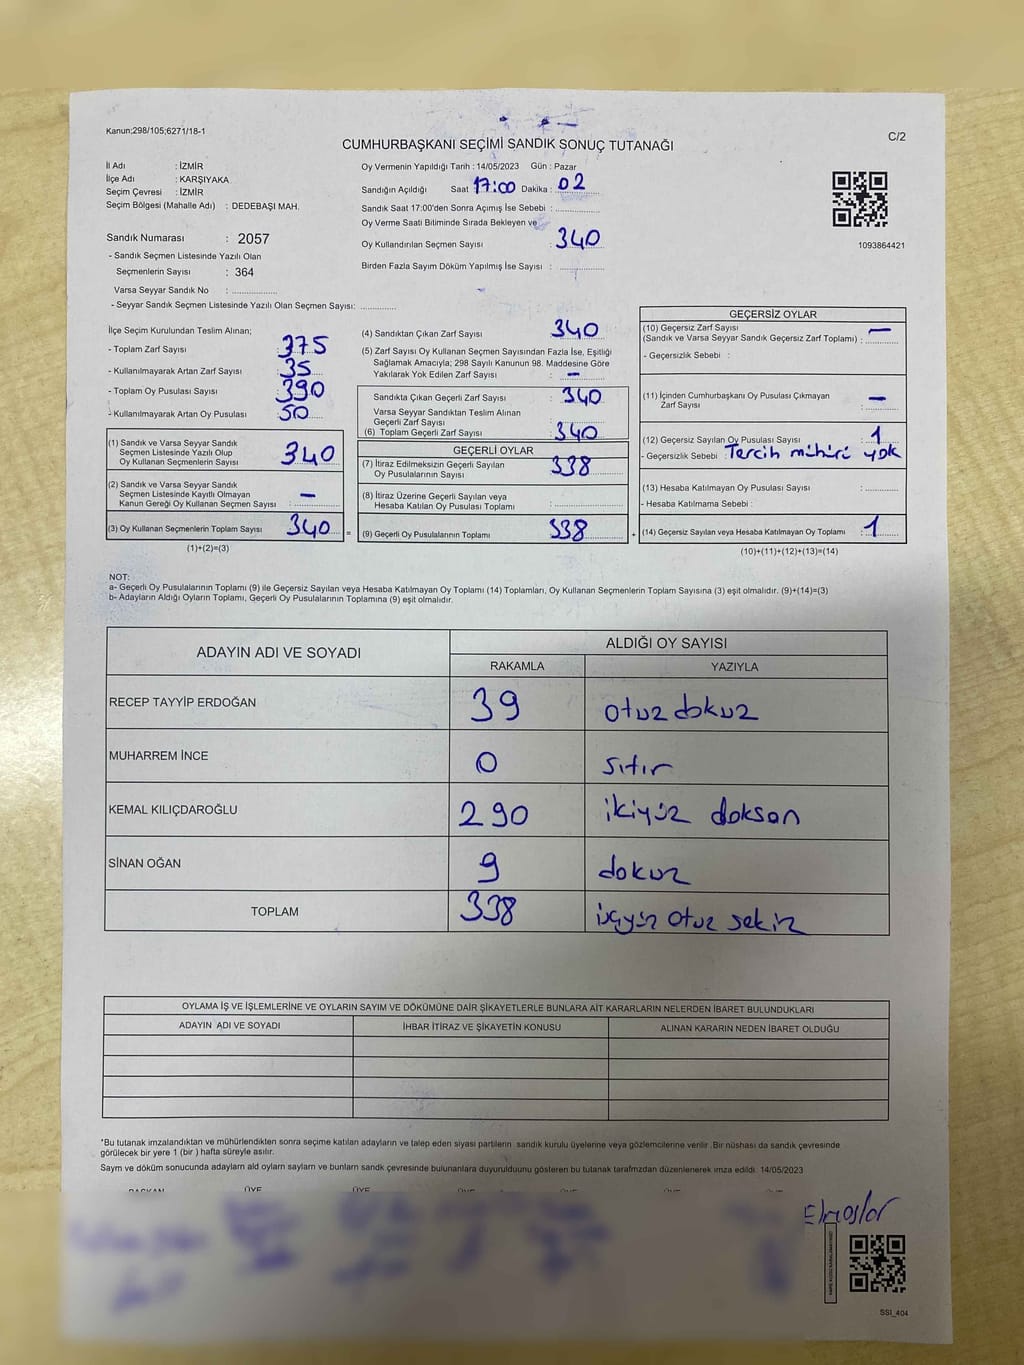 Kanun;298/105;6271/18-1
C/2
CUMHURBAŞKANI SEÇİMİ SANDIK SONUÇ TUTANAĞI
İl Adı : İZMİR
İlçe Adı : KARŞIYAKA
Seçim Çevresi : İZMİR
Seçim Bölgesi (Mahalle Adı) : DEDEBAŞI MAH.
Sandık Numarası : 2057
- Sandık Seçmen Listesinde Yazılı Olan
Seçmenlerin Sayısı : 364
Varsa Seyyar Sandık No : ..................
- Seyyar Sandık Seçmen Listesinde Yazılı Olan Seçmen Sayısı: ..............
Oy Vermenin Yapıldığı Tarih : 14/05/2023 Gün : Pazar
Sandığın Açıldığı Saat 17:00 Dakika : 02
Sandık Saat 17:00'den Sonra Açımış İse Sebebi : ..................
Oy Verme Saati Bitiminde Sırada Bekleyen ve
Oy Kullandırılan Seçmen Sayısı : 340
Birden Fazla Sayım Döküm Yapılmış İse Sayısı : ..................
1093864421
İlçe Seçim Kurulundan Teslim Alınan;
- Toplam Zarf Sayısı : 375
- Kullanılmayarak Artan Zarf Sayısı : 35
- Toplam Oy Pusulası Sayısı : 390
- Kullanılmayarak Artan Oy Pusulası : 50
(1) Sandık ve Varsa Seyyar Sandık
Seçmen Listesinde Yazılı Olup
Oy Kullanan Seçmenlerin Sayısı : 340
(2) Sandık ve Varsa Seyyar Sandık
Seçmen Listesinde Kayıtlı Olmayan
Kanun Gereği Oy Kullanan Seçmen Sayısı : –
(3) Oy Kullanan Seçmenlerin Toplam Sayısı : 340 =
(1)+(2)=(3)
(4) Sandıktan Çıkan Zarf Sayısı : 340
(5) Zarf Sayısı Oy Kullanan Seçmen Sayısından Fazla İse, Eşitliği
Sağlamak Amacıyla; 298 Sayılı Kanunun 98. Maddesine Göre
Yakılarak Yok Edilen Zarf Sayısı : –
Sandıkta Çıkan Geçerli Zarf Sayısı : 340
Varsa Seyyar Sandıktan Teslim Alınan
Geçerli Zarf Sayısı :
(6) Toplam Geçerli Zarf Sayısı : 340
GEÇERLİ OYLAR
(7) İtiraz Edilmeksizin Geçerli Sayılan
Oy Pusulalarının Sayısı : 338
(8) İtiraz Üzerine Geçerli Sayılan veya
Hesaba Katılan Oy Pusulası Toplamı : ..................
(9) Geçerli Oy Pusulalarının Toplamı : 338 +
GEÇERSİZ OYLAR
(10) Geçersiz Zarf Sayısı –
(Sandık ve Varsa Seyyar Sandık Geçersiz Zarf Toplamı) : ............
- Geçersizlik Sebebi :
(11) İçinden Cumhurbaşkanı Oy Pusulası Çıkmayan –
Zarf Sayısı : ............
(12) Geçersiz Sayılan Oy Pusulası Sayısı : 1
- Geçersizlik Sebebi : Tercih mühürü yok
(13) Hesaba Katılmayan Oy Pusulası Sayısı : ............
- Hesaba Katılmama Sebebi :
(14) Geçersiz Sayılan veya Hesaba Katılmayan Oy Toplamı : 1
(10)+(11)+(12)+(13)=(14)
NOT:
a- Geçerli Oy Pusulalarının Toplamı (9) ile Geçersiz Sayılan veya Hesaba Katılmayan Oy Toplamı (14) Toplamları, Oy Kullanan Seçmenlerin Toplam Sayısına (3) eşit olmalıdır. (9)+(14)=(3)
b- Adayların Aldığı Oyların Toplamı, Geçerli Oy Pusulalarının Toplamına (9) eşit olmalıdır.
ADAYIN ADI VE SOYADI ALDIĞI OY SAYISI
RAKAMLA YAZIYLA
RECEP TAYYİP ERDOĞAN 39 otuz dokuz
MUHARREM İNCE 0 sıfır
KEMAL KILIÇDAROĞLU 290 ikiyüz doksan
SİNAN OĞAN 9 dokuz
TOPLAM 338 üçyüz otuz sekiz
OYLAMA İŞ VE İŞLEMLERİNE VE OYLARIN SAYIM VE DÖKÜMÜNE DAİR ŞİKAYETLERLE BUNLARA AİT KARARLARIN NELERDEN İBARET BULUNDUKLARI
ADAYIN ADI VE SOYADI İHBAR İTİRAZ VE ŞİKAYETİN KONUSU ALINAN KARARIN NEDEN İBARET OLDUĞU
*Bu tutanak imzalandıktan ve mühürlendikten sonra seçime katılan adayların ve talep eden siyasi partilerin sandık kurulu üyelerine veya gözlemcilerine verilir. Bir nüshası da sandık çevresinde
görülecek bir yere 1 (bir ) hafta süreyle asılır.
Saym ve döküm sonucunda adaylarn ald oylarn saylarn ve bunlarn sandk çevresinde bulunanlara duyurulduunu gösteren bu tutanak tarafmzdan düzenlenerek imza edildi. 14/05/2023
BAŞKAN ÜYE ÜYE ÜYE ÜYE ÜYE ÜYE
SSI_404